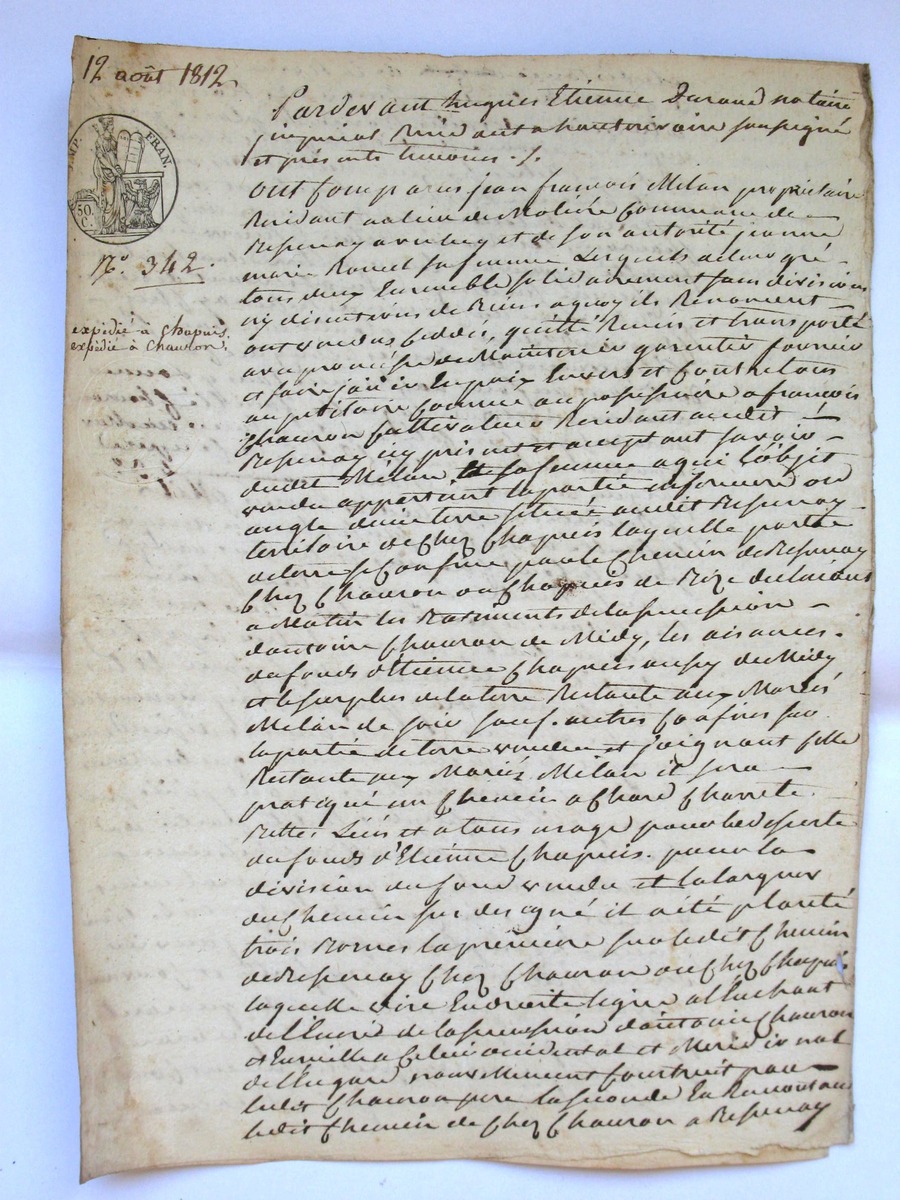 12 août 1812.
IMP. FRAN.
50. C.
N.º 342.
expédié à Chapuis
expédié à Chauron.
Pardevant hugues Etienne Durand notaire
impérial Résidant a hauterivoire soussigné
et présents témoins ./.
ont Comparus jean françois Milan propriétaire
Résidant au lieu de Commune de
Ressenay avec luy et de son autorité jeanne
marie sa femme Lesquels de leur gré
tous deux Ensemble solidairement sans division
ny discution de Biens a quoy ils Renoncent
ont vendus Ceddés, quitté Remis et transporté
avec promesse de Maintenir garentir fournir
et faire jouir En paix Envers et Contre tous
au pétitoire Comme au possessoire a françois
Chauron Cultivateur Résidant audit
Ressenay icy présent et acceptant savoir
dudit Milan et sa femme a qui L'objet
vendu appartient la partie inférieure ou
angle d'une terre située audit Ressenay
territoire de Chez Chapuis laquelle partie
de terre se Confine par le Chemin de Ressenay
Chez Chauron ou Chapuis de Bize
a Matin les Batiments de la succession
d'antoine Chauron de Midy, les aisances
du fonds d'Etienne Chapuis aussy de Midy
et le surplus de la terre Restante aux Mariés
Milan de soir sauf autres Confins sur
la partie de terre vendue et joignant Celle
Restante aux Mariés Milan il sera
pratiqué un Chemin a Char Charrette
Bettes Liés et à tous usage pour la desserte
du fonds d'Etienne Chapuis. pour la
division du fond vendu et la largeur
du Chemin sus designé il a été planté
trois Bornes la première sur ledit Chemin
de Ressenay Chez Chauron ou Chez Chapuis
laquelle vire En droite ligne
de la succession d'antoine Chauron
et Celui occidental et Meridional
nouvellement Construit par
ledit Chauron la seconde En Remontant
ledit Chemin de Chez Chauron a Ressenay